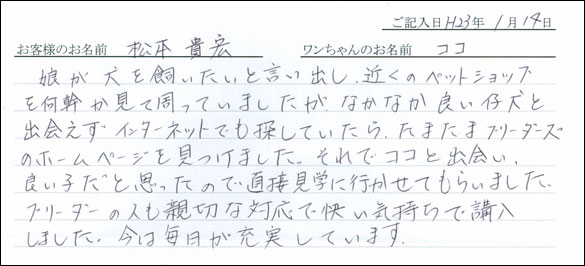 ご記入日 H23年 1月 14日
お客様のお名前 松本 貴宏 ワンちゃんのお名前 ココ
娘が犬を飼いたいと言い出し、近くのペットショップ
を何幹か見て周っていましたが、なかなか良い仔犬と
出会えず インターネットでも探していたら、たまたまブリーダーズ
のホームページを見つけました。それでココと出会い、
良い子だと思ったので直接見学に行かせてもらいました。
ブリーダーの人も親切な対応で快い気持ちで講入
しました。今は毎日が充実しています。